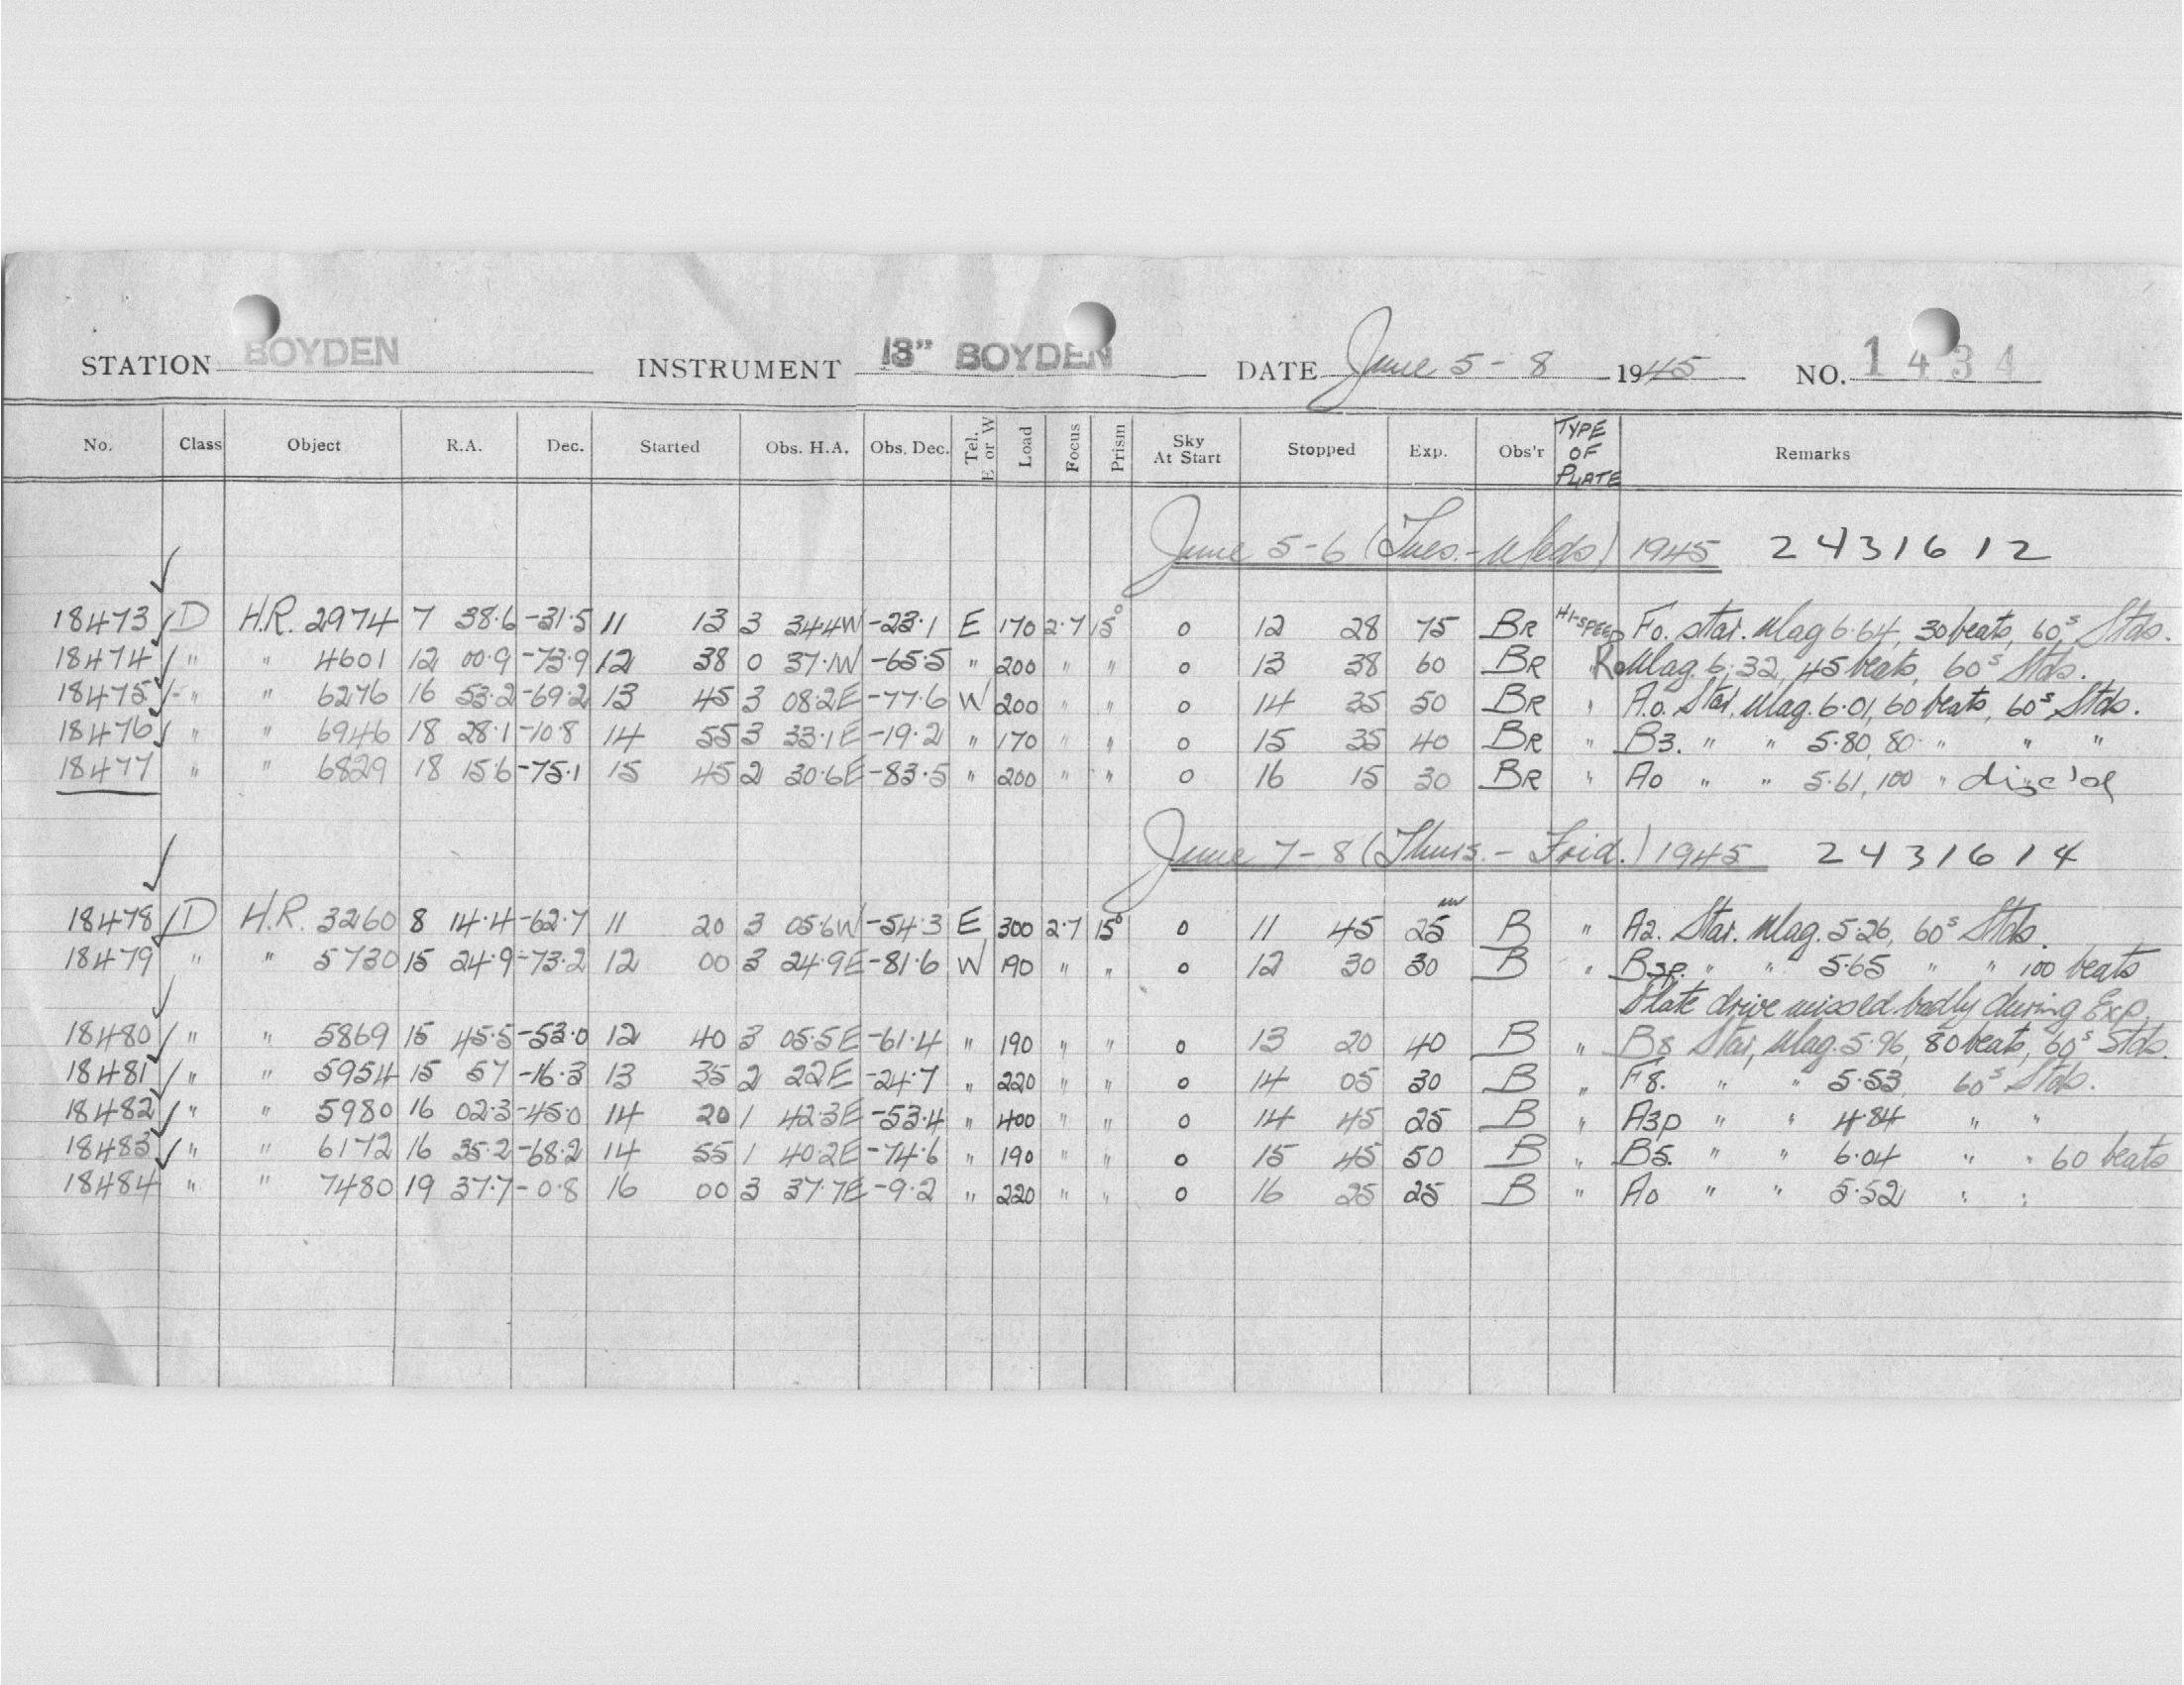 STATION BOYDEN INSTRUMENT 13" BOYDEN DATE June 5-8 1945 NO. 1434
No. Class Object R.A. Dec. Started Obs. H.A. Obs. Dec. Tel. E or W Load Focus Prism Sky At Start Stopped Exp. Obs'r TYPE OF PLATE Remarks
June 5-6 (Tues.-Weds) 1945 2431612
18473 D H.R. 2974 7 38.6 -31.5 11 13 3 34.4W -23.1 E 170 2.7 15° 0 12 28 75 BR HI-SPEED F0. star. Mag 6.64, 30 beats, 60s Stds.
18474 " " 4601 12 00.9 -73.9 12 38 0 37.1W -65.5 " 200 " " 0 13 38 60 BR " Mag. 6.32, 45 beats, 60s Stds.
18475 " " 6276 16 53.2 -69.2 13 45 3 08.2E -77.6 W 200 " " 0 14 35 50 BR " A.0. Star, Mag. 6.01, 60 beats, 60s Stds.
18476 " " 6946 18 28.1 -10.8 14 55 3 33.1E -19.2 " 170 " " 0 15 35 40 BR " B3. " " 5.80, 80 " " "
18477 " " 6829 18 15.6 -75.1 15 45 2 30.6E -83.5 " 200 " " 0 16 15 30 BR " A0 " " 5.61, 100 " disc'd
June 7-8 (Thurs.-Frid.) 1945 2431614
18478 D H.R. 3260 8 14.4 -62.7 11 20 3 05.6W -54.3 E 300 2.7 15° 0 11 45 25 B " A2. Star. Mag. 5.26, 60s Stds.
18479 " " 5730 15 24.9 -73.2 12 00 3 24.9E -81.6 W 190 " " 0 12 30 30 B " B3p. " " 5.65 " " 100 beats
Plate drive missed badly during Exp.
18480 " " 5869 15 45.5 -53.0 12 40 3 05.5E -61.4 " 190 " " 0 13 20 40 B " B8 Star, Mag. 5.96, 80 beats, 60s Stds.
18481 " " 5954 15 57 -16.3 13 35 2 22E -24.7 " 220 " " 0 14 05 30 B " F8. " " 5.53 60s Stds.
18482 " " 5980 16 02.3 -45.0 14 20 1 42.3E -53.4 " 400 " " 0 14 45 25 B " A3p " " 4.84 " "
18483 " " 6172 16 35.2 -68.2 14 55 1 40.2E -74.6 " 190 " " 0 15 45 50 B " B5. " " 6.04 " " 60 beats
18484 " " 7480 19 37.7 -0.8 16 00 3 37.7E -9.2 " 220 " " 0 16 25 25 B " A0 " " 5.52 " "